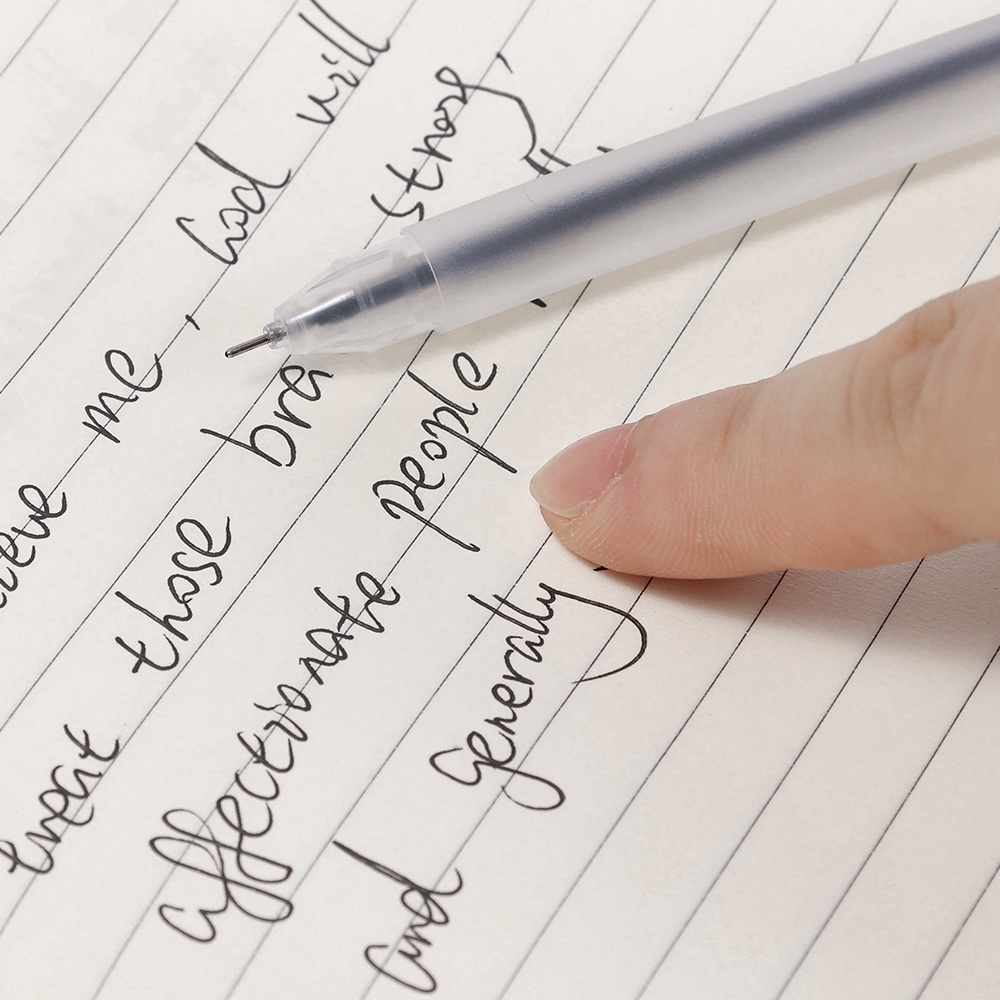 me, God will
treat those bra strong,
affectionate people
and generally